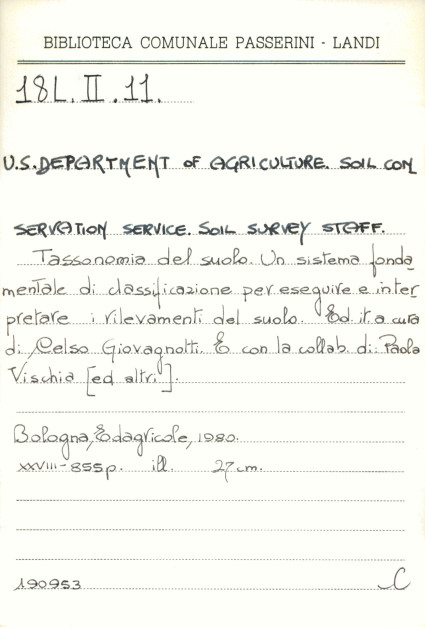 BIBLIOTECA COMUNALE PASSERINI - LANDI
18L.II.11.
U.S. DEPARTMENT of AGRICULTURE. SOIL CON
SERVATION SERVICE. SOIL SURVEY STAFF.
Tassonomia del suolo. Un sistema fonda
mentale di classificazione per eseguire e inter
pretare i rilevamenti del suolo. Ed.it.a cura
di Celso Giovagnotti. E con la collab. di: Paola
Vischia [ed altri].
Bologna, Edagricole, 1980.
XXVIII-855p. ill. 27cm.
190953 C